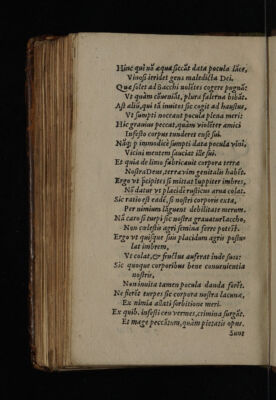 Hinc qui nã æqua siccãt data pocula lãce,
Vinosi irridet gens maledicta Dei.
Quæ solet ad Bacchi nolẽtes cogere pugnã:
Vt quàm cõueniãt, plura falerna bibãt.
Ast aliũ, qui tã inuites sic cogit ad haustus,
Vt sumpti noceant pocula plena meri:
Hic grauius peccat, quàm violẽter amici
Infesto corpus tunderet ense sui.
Nãq; p immodicè sumpti data pocula vini,
Vicini mentem sauciat ille sui.
Et quia de limo fabricauit corpora terræ
Nostra Deus, terræ vim genitalis habẽt.
Ergo vt p̃cipites si mittat Iuppiter imbres,
Nã datur vt placidè rusticus arua colat.
Sic ratio est eadẽ, si nostri corporis extra,
Per nimium lãguent debilitate merum.
Nã caro si turpi sic nostra grauatur Iaccho,
Non cælestis agri semina ferre potest.
Ergo vt quisque suis placidum agris postulat imbrem,
Vt colat, & fructus auferat inde suos:
Sic quoque corporibus bene conuenientia nostris,
Non inuita tamen pocula danda forẽt.
Ne fierẽt turpes sic corpora nostra lacunæ,
Ex nimia allati sorbitione meri.
Ex quib. infesti ceu vermes, crimina surgãt.
Et mage peccãtum, quàm pietatis opus.
Sunt